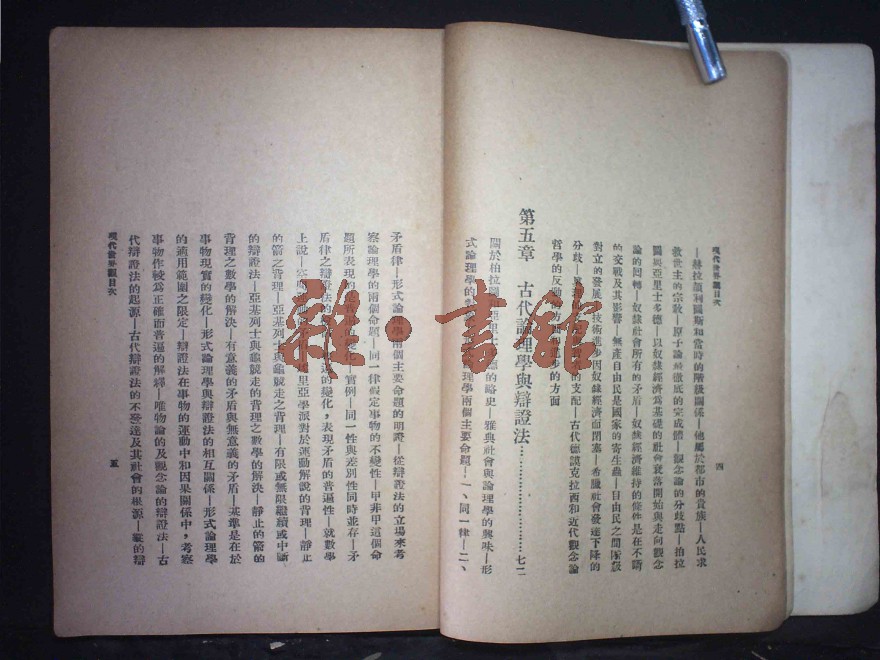 現代世界觀目次
四
—赫拉頡利圖斯和當時的階級關係—他屬於都市的貴族—人民求
救世主的宗教—原子論最徹底的完成體—觀念論的分歧點—柏拉
圖與亞里士多德—以奴隸經濟爲基礎的社會衰落開始與走向觀念
論的回轉—奴隸社會所有的矛盾—奴隸經濟維持的條件是在不斷
的交戰及其影響—無產自由民是國家的寄生蟲—自由民之間階級
對立的發展—技術進步因奴隸經濟而閉塞—希臘社會發達下降的
分歧—的支配—古代德謨克拉西和近代觀念論
哲學的反方面和進步的方面
第五章 古代論理學與辯證法…………七二
關於柏拉圖亞里士多德的略史—雅典社會與論理學的興味—形
式論理學的理學兩個主要命題—一、同一律—二、
矛盾律—形式論理學兩個主要命題的明證—從辯證法的立場來考
察論理學的兩個命題—同一律假定事物的不變性—甲非甲這個命
題所表現的實例—同一性與差別性同時並存—矛
盾律之辯證法的變化，表現矛盾的普遍性—就數學
上說—里亞學派對於運動解說的背理—靜止
的箭之背理—亞基列士與龜競走之背理—有限或無限繼續或中斷
的辯證法—亞基列士與龜競走的背理之數學的解決—靜止的箭的
背理之數學的解決—有意義的矛盾與無意義的矛盾—基準是在於
事物現實的變化—形式論理學與辯證法的相互關係—形式論理學
的適用範圍之限定—辯證法在事物的運動中和因果關係中，考察
事物作較爲正確而普遍的解釋—唯物論的及觀念論的辯證法—古
代辯證法的起源—古代辯證法的不發達及其社會的根源—縱的辯
現代世界觀目次
五
雜·書館